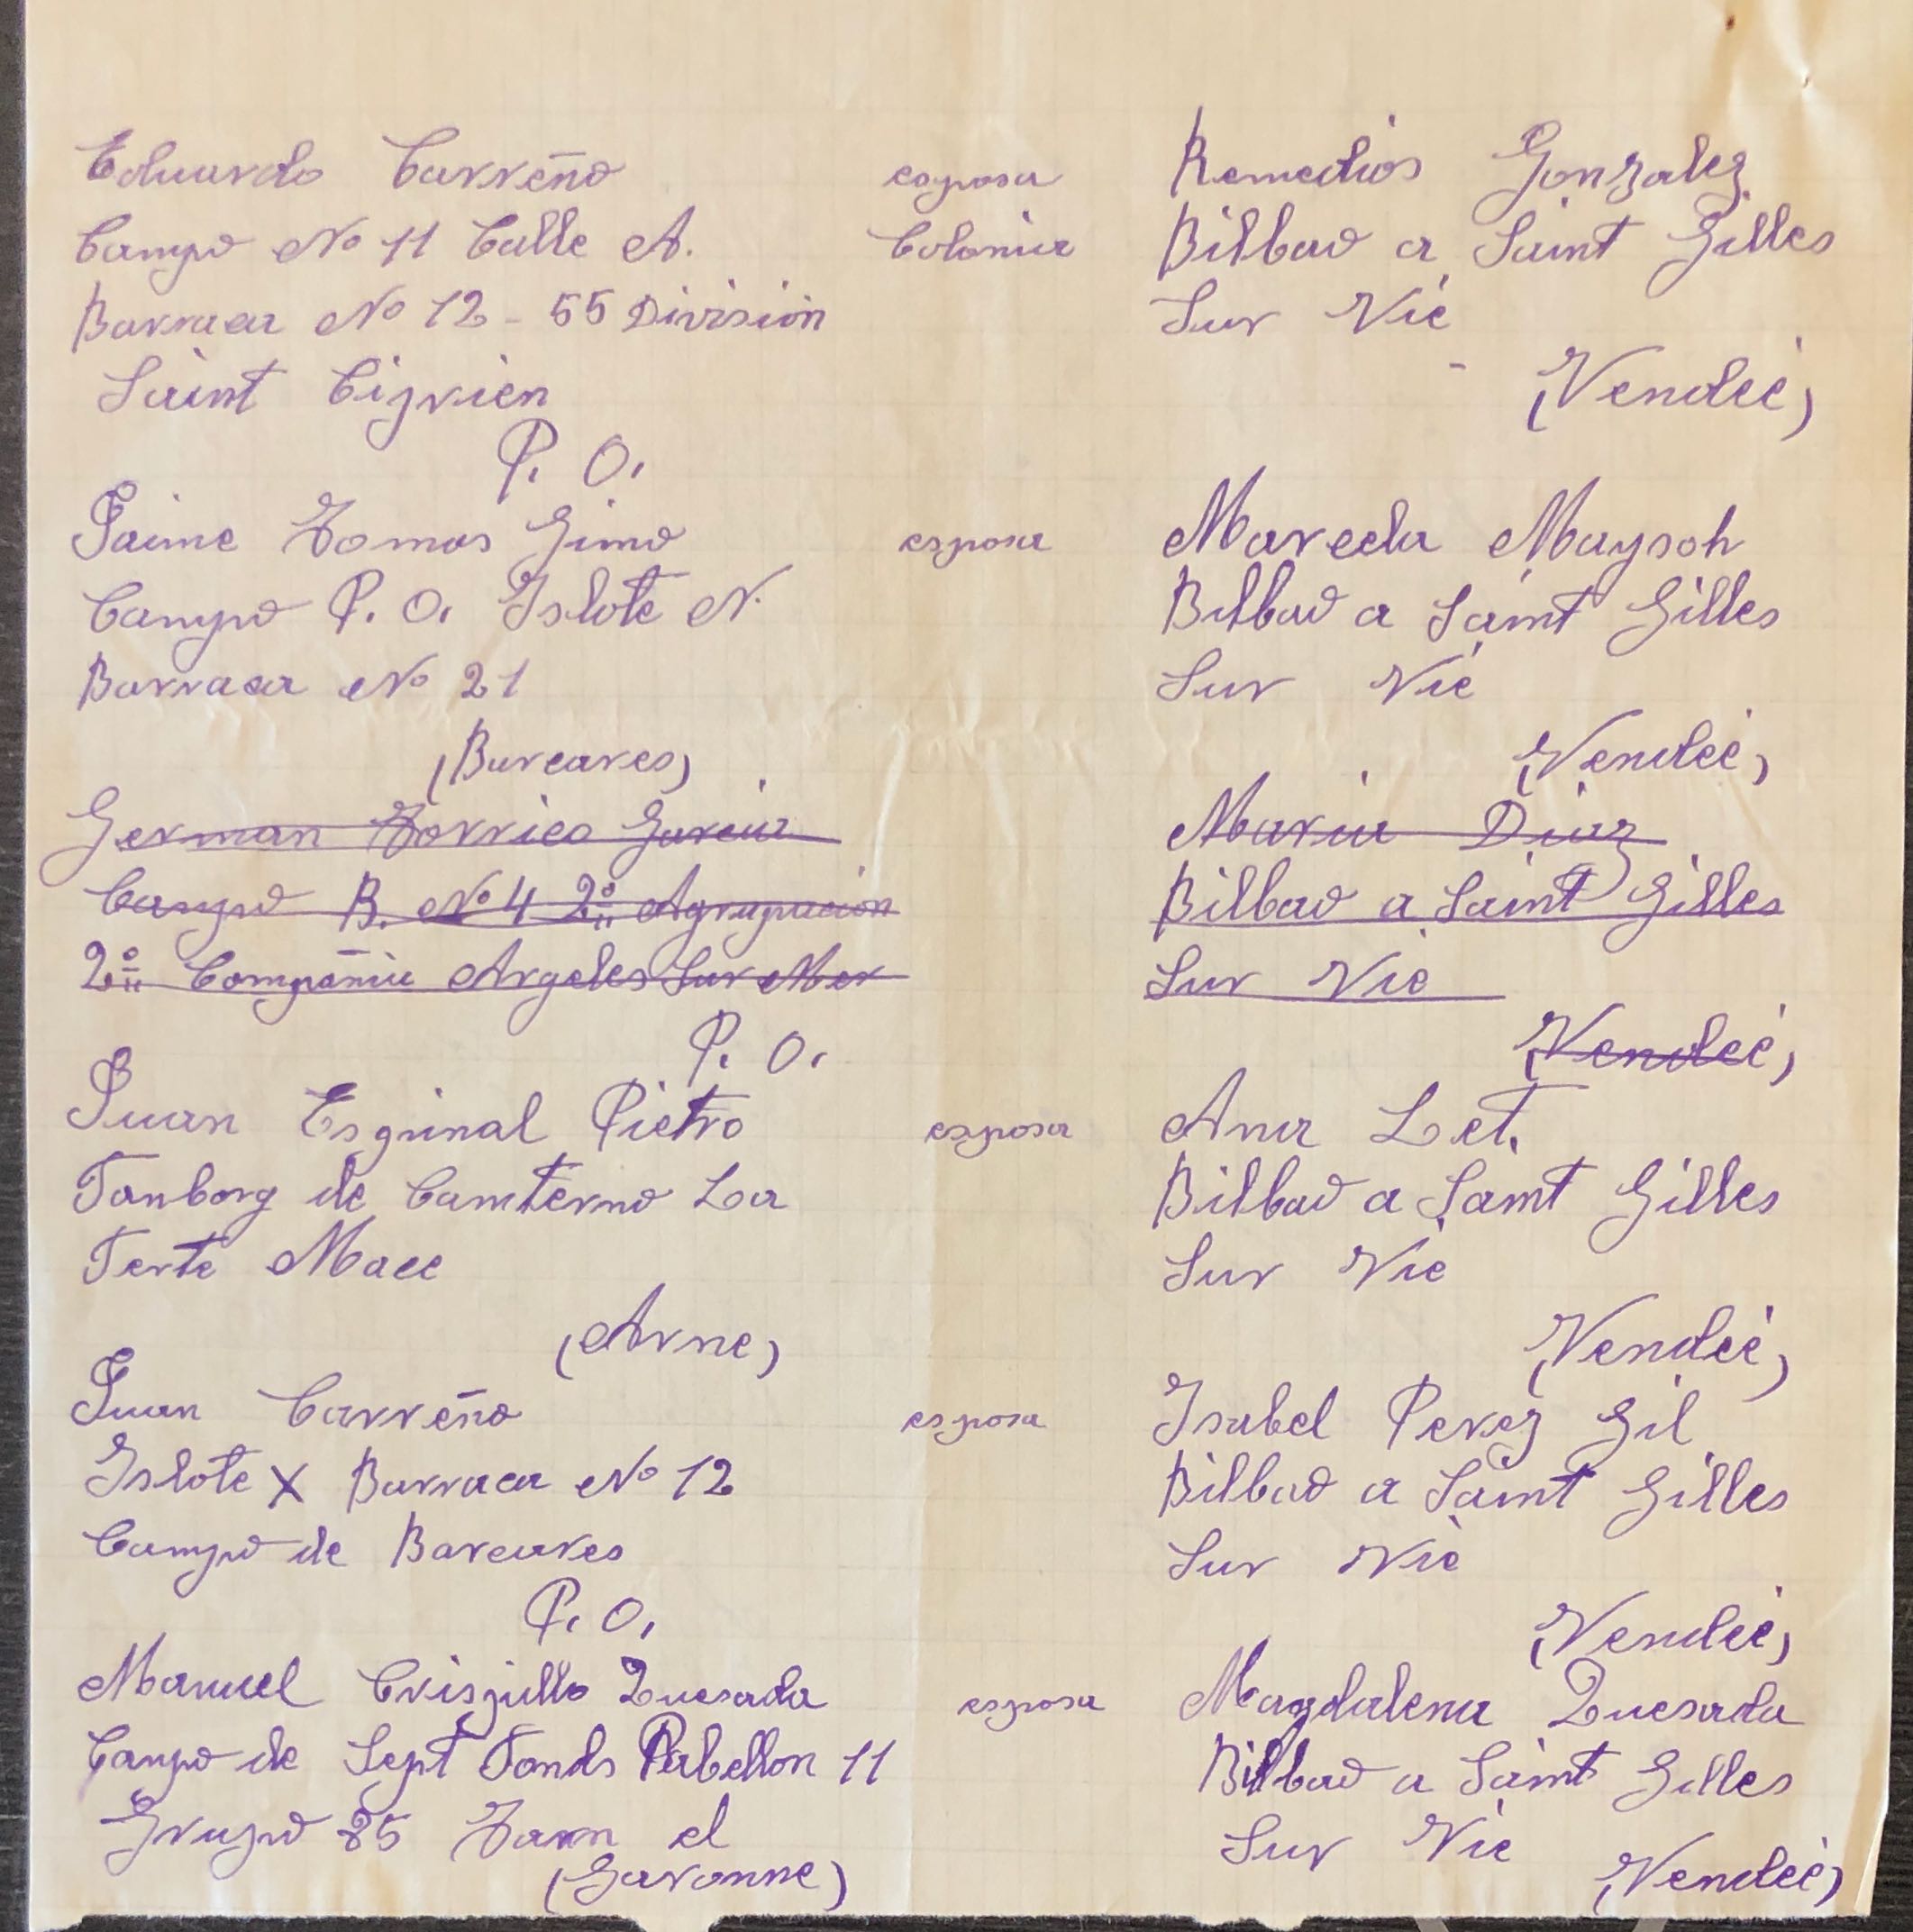 Eduardo Carreño esposa Remedios Gonzalez
Campo No 11 Calle A. Colonia Bilbao a Saint Gilles
Barraca No 12 - 55 Division Sur Vie
Saint Ciprien (Vendeé)
P. O.
Jaime Tomas Gimo esposa Marcela Maysoh
Campo P. O. Islote N. Bilbao a Saint Gilles
Barraca No 21 Sur Vie
(Barcares) (Vendeé)
German Torrico Garcia Maria Diaz
Campo B. No 4 2ª Agrupacion Bilbao a Saint Gilles
2ª Compañia Argeles Sur Mer Sur Vie
P. O. (Vendeé)
Juan Espinal Pietro esposa Ana Let.
Fanborg de Camterno La Bilbao a Saint Gilles
Ferte Mace Sur Vie
(Arne) (Vendeé)
Juan Carreño esposa Isabel Perez Gil
Islote X Barraca No 12 Bilbao a Saint Gilles
Campo de Barcares Sur Vie
P. O. (Vendeé)
Manuel Crispillo Quesada esposa Magdalena Quesada
Campo de Sept Fonds Pabellon 11 Bilbao a Saint Gilles
Grupo 85 Tarn el Sur Vie
(Garonne) (Vendeé)